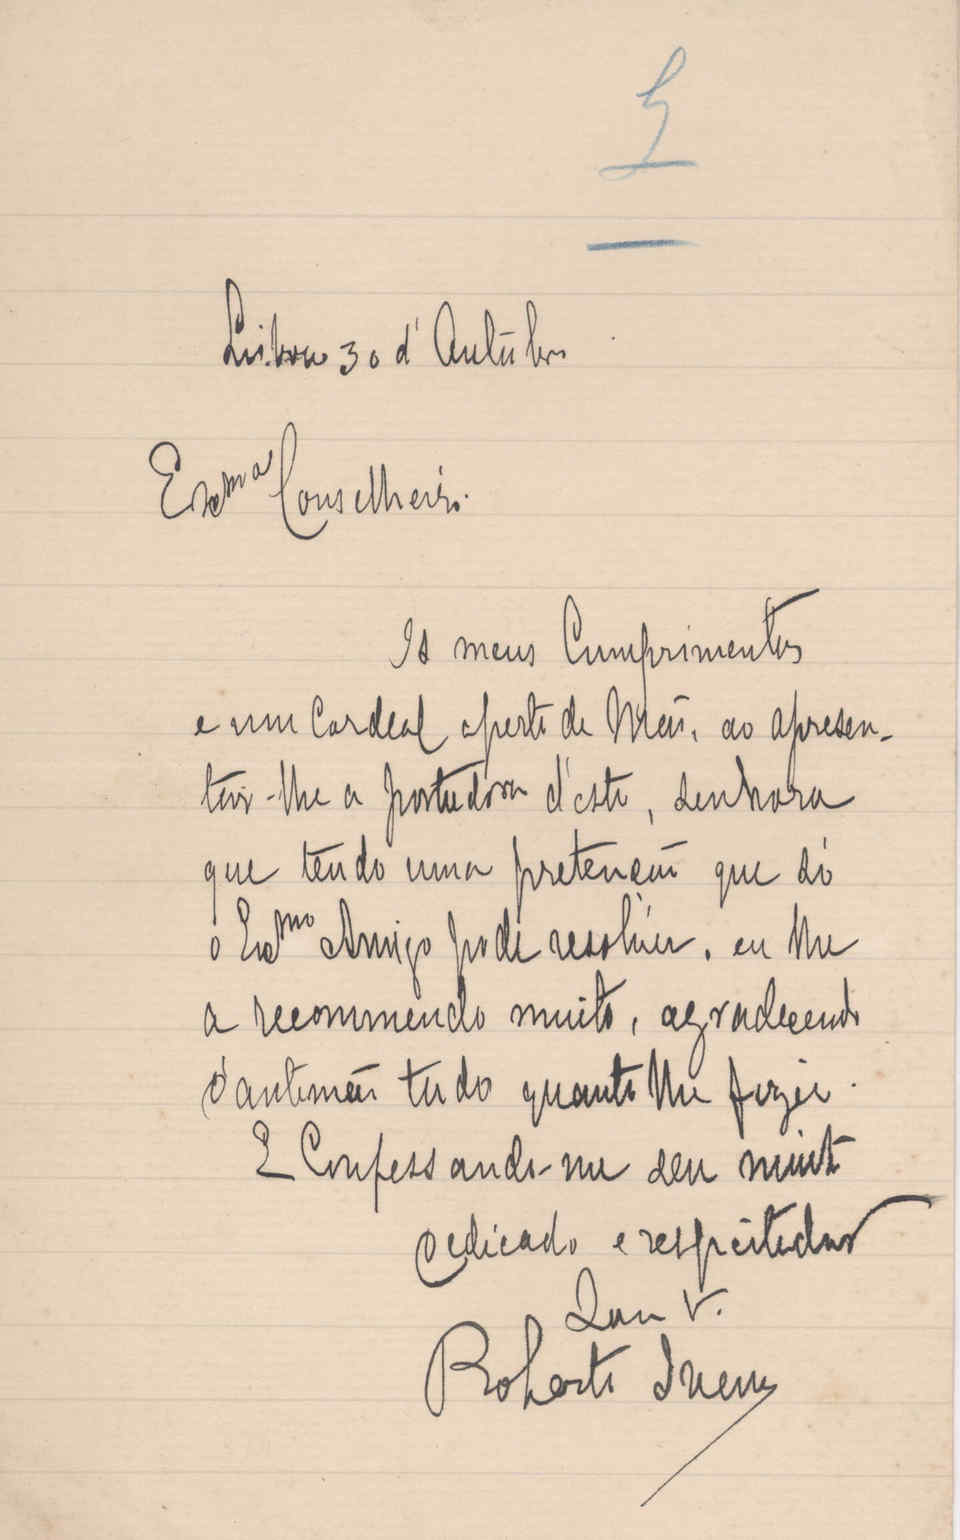 Lisboa 30 d'Outubro
Exmo Conselheiro.
Os meus Cumprimentos
e um Cordeal aperto de Mão, ao apresen-
tar-lhe a portadora d'esta, senhora
que tendo uma pretenção que só
o Exmo Amigo pode resolver, eu lhe
a recommendo muito, agradecendo
d'antemão tudo quanto lhe fizer.
E Confessando-me seu muito
dedicado e respeitador
V.
Roberto Ivens